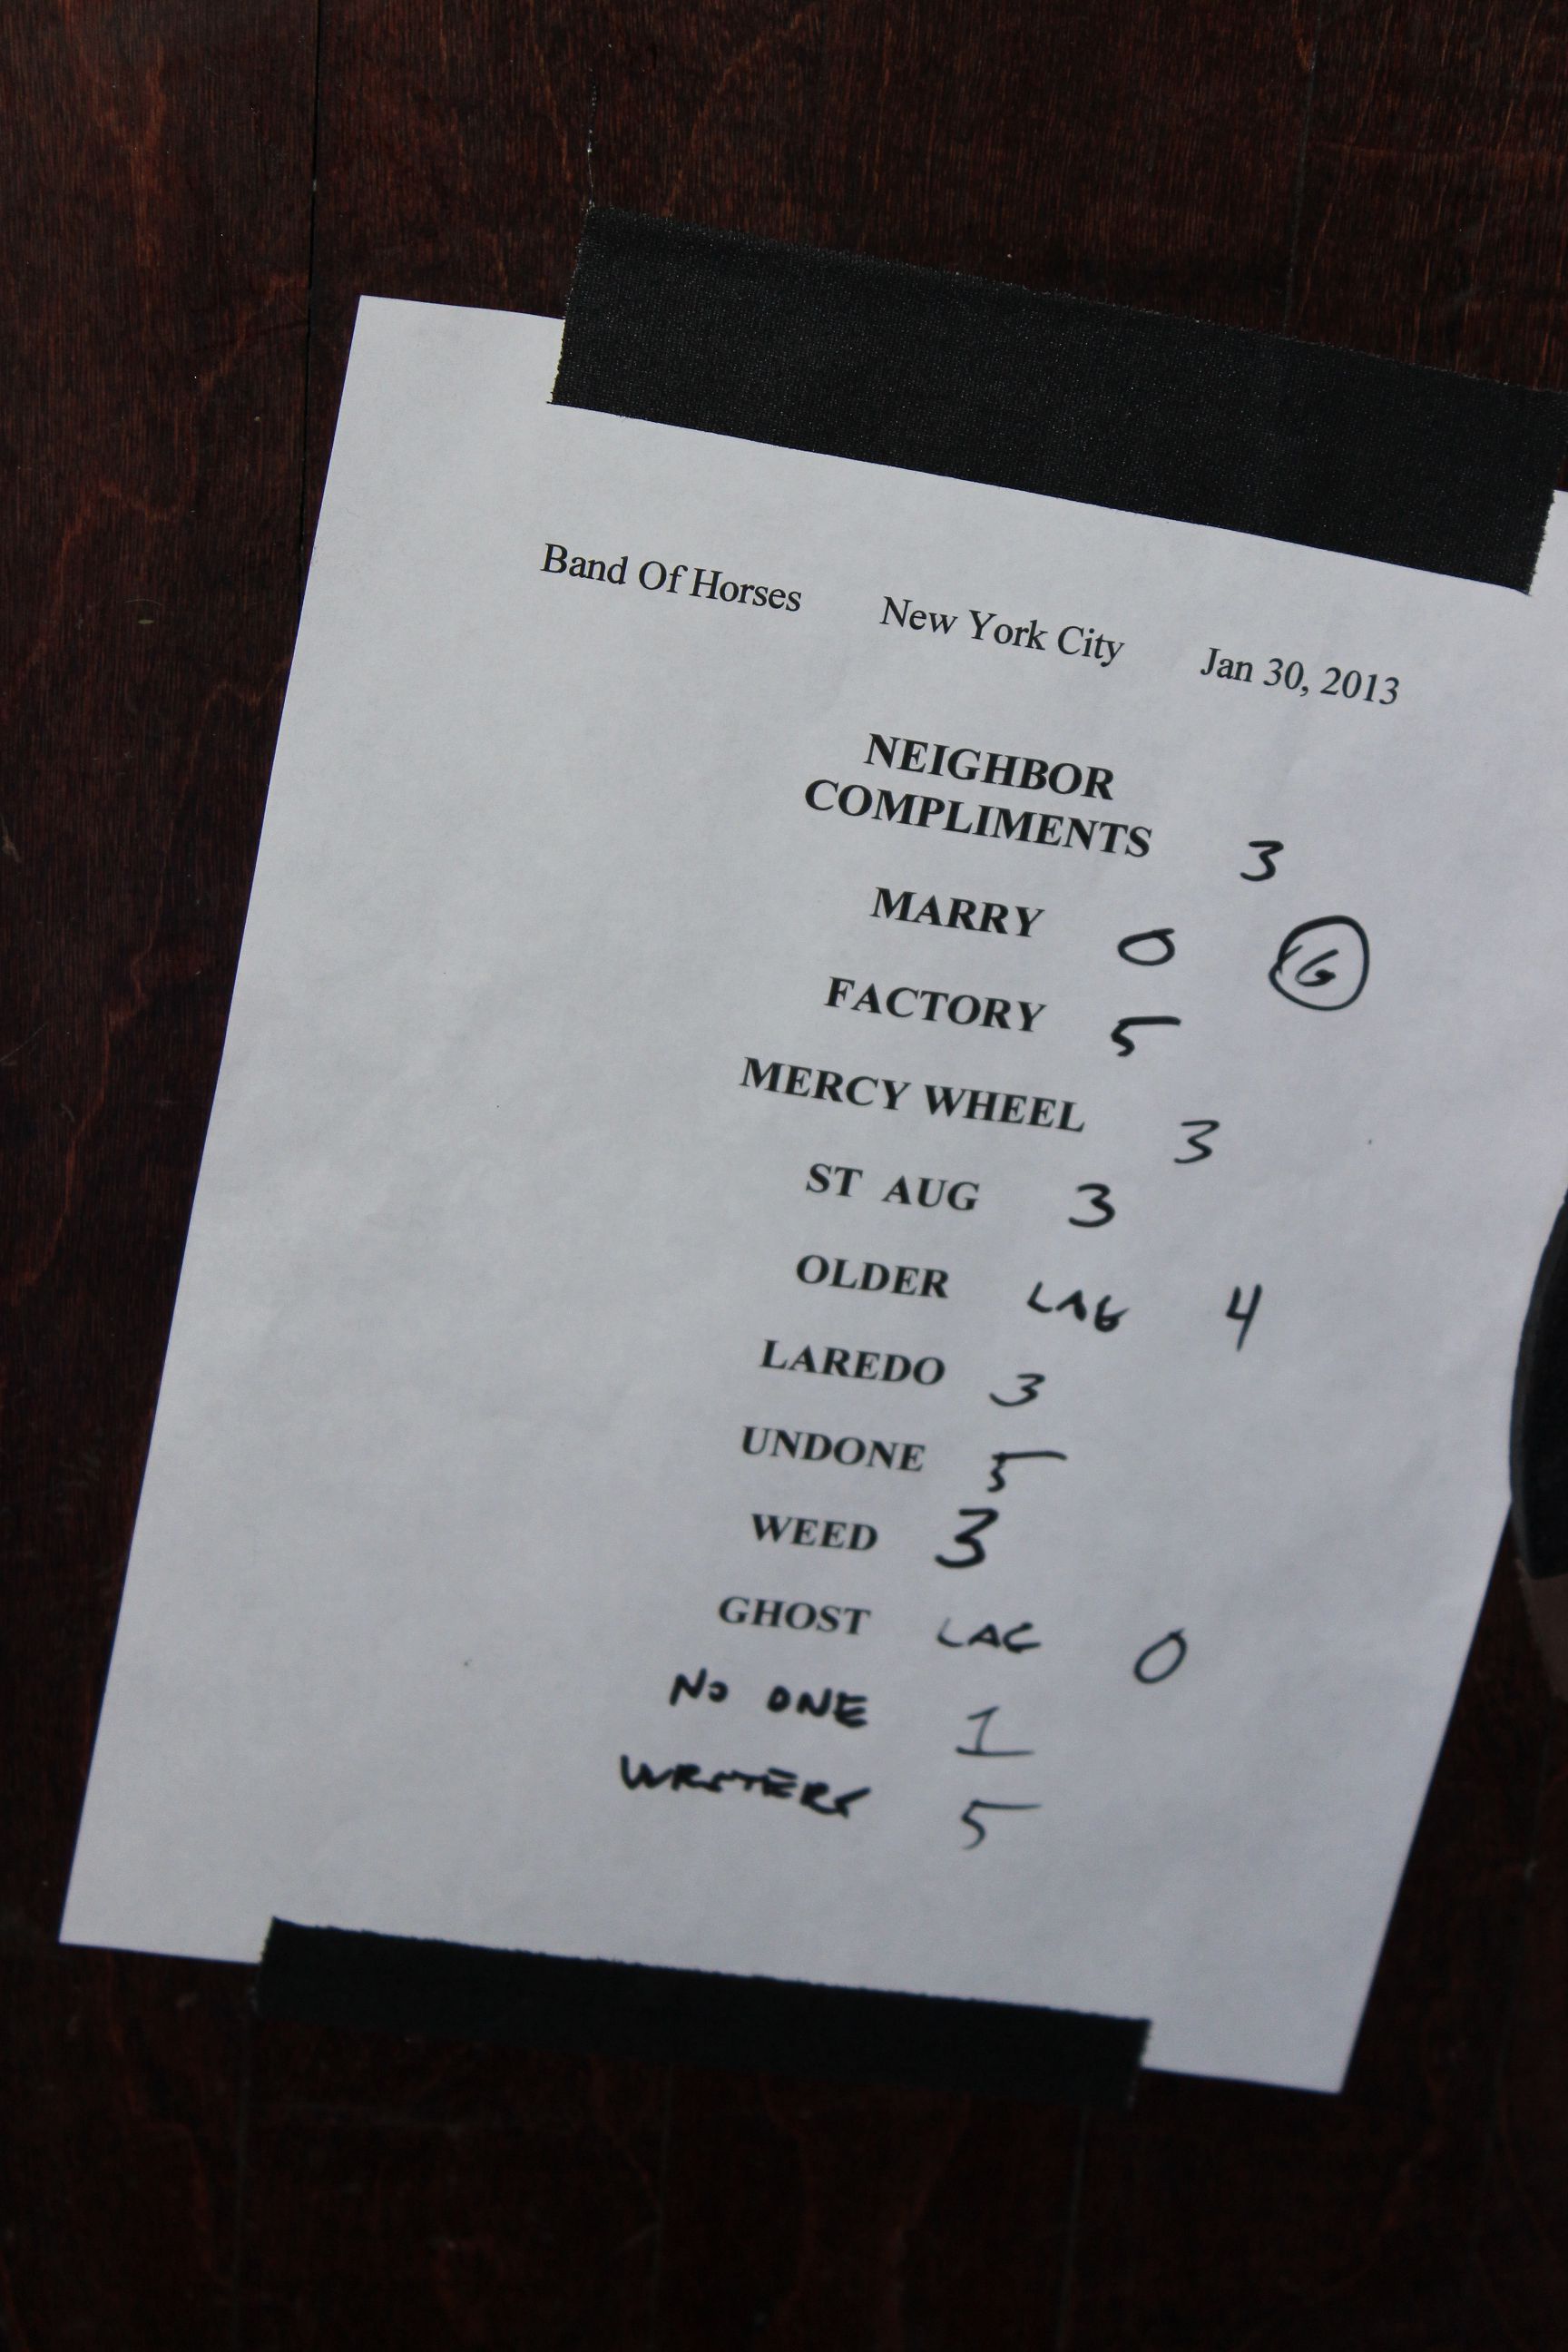 Band Of Horses New York City Jan 30, 2013
NEIGHBOR
COMPLIMENTS 3
MARRY 0 G
FACTORY 5
MERCY WHEEL 3
ST AUG 3
OLDER LAG 4
LAREDO 3
UNDONE 5
WEED 3
GHOST LAG 0
NO ONE 1
WRITERS 5